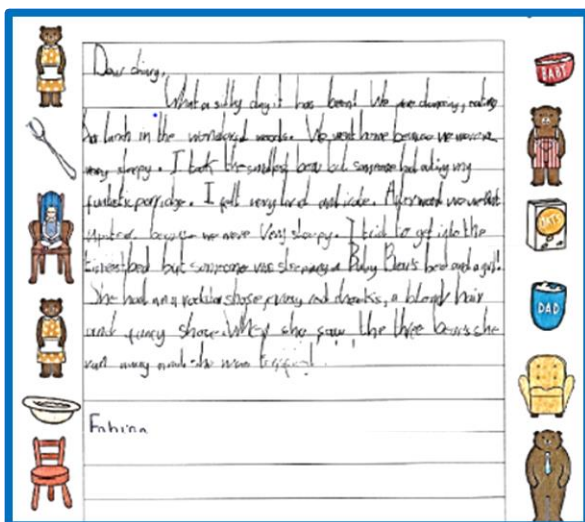 Dear diary,
What a silly day it has been! We were dancing, eating
our lunch in the wonderful woods. We went home because we were
very sleepy. I took the smallest bowl but someone had eating my
fantastic porridge. I felt very and. Afterward we went
upstair because we were very sleepy. I tried to get into the
bed but someone was sleeping in Baby Bear's bed and a girl!
She had, red cheeks, a blond hair
and fancy. When she saw the three bears she
ran away and she was
BABY
OATS
DAD